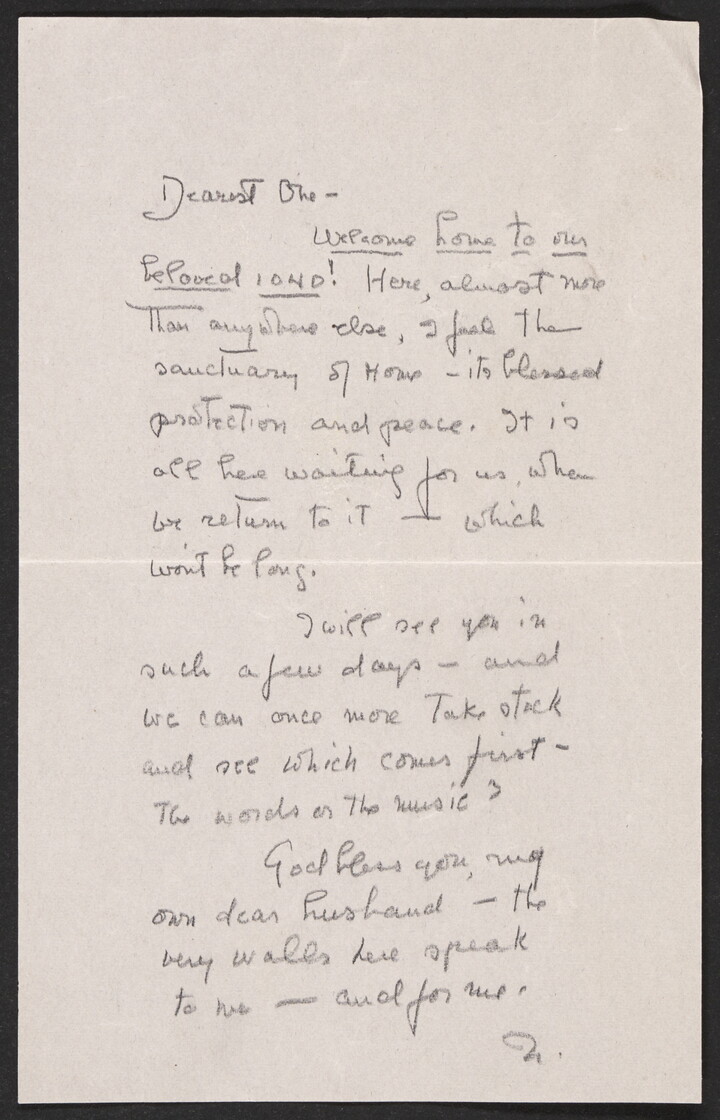 Dearest One —
Welcome home to our
beloved 1040! Here, almost more
than anywhere else, I feel the
sanctuary of Home — its blessed
protection and peace. It is
all here waiting for us, when
we return to it — which
won't be long.
I will see you in
such a few days — and
we can once more take stock
and see which comes first —
The words or the music?
God bless you, my
own dear husband — the
very walls here speak
to me — and for me.